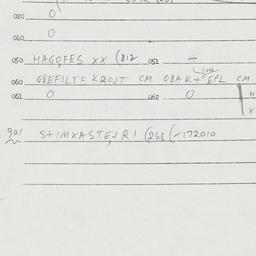 020 0
040 0
050 HAGOFES XX (812 051 –
060 GREFILTE KROJT CM OBAK + EPL CM
061 0 062 0
901 STIMXASTEJRI (268 (-172010